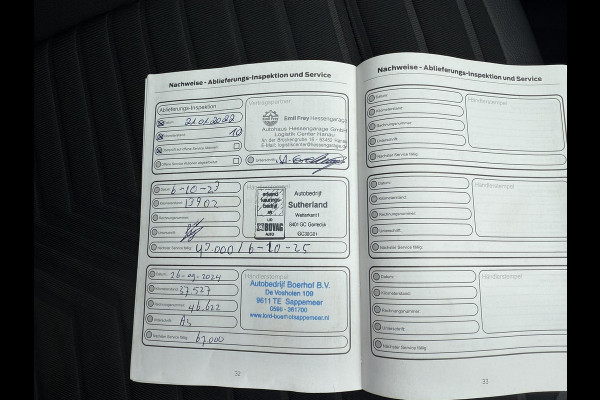 Nachweise - Ablieferungs-Inspektion und Service
Ablieferungs-Inspektion
Datum 21.01.2022
Kilometerstand 10
Vertragspartner
Emil Frey Hessengarage
Autohaus Hessengarage GmbH
Logistik Center Hanau
Unterschrift
Datum 6-10-23
Kilometerstand 13902
Rechnungsnummer
Unterschrift
Nächster Service fällig: 43.000 / 6-10-25
Autobedrijf
Sutherland
9401 GC Gorredijk
BOVAG
Datum 26-09-2024
Kilometerstand 37527
Rechnungsnummer 46.622
Unterschrift
Nächster Service fällig: 67.000
Händlerstempel
Autobedrijf Boerhof B.V.
De Vosholen 109
9611 TE Sappemeer
0598 - 361700
www.ford-boerhofsappemeer.nl
32
Nachweise - Ablieferungs-Inspektion und Service
Datum:
Kilometerstand:
Rechnungsnummer:
Unterschrift:
Nächster Service fällig:
Händlerstempel
Datum:
Kilometerstand:
Rechnungsnummer:
Unterschrift:
Nächster Service fällig:
Händlerstempel
Datum:
Kilometerstand:
Rechnungsnummer:
Unterschrift:
Nächster Service fällig:
Händlerstempel
33